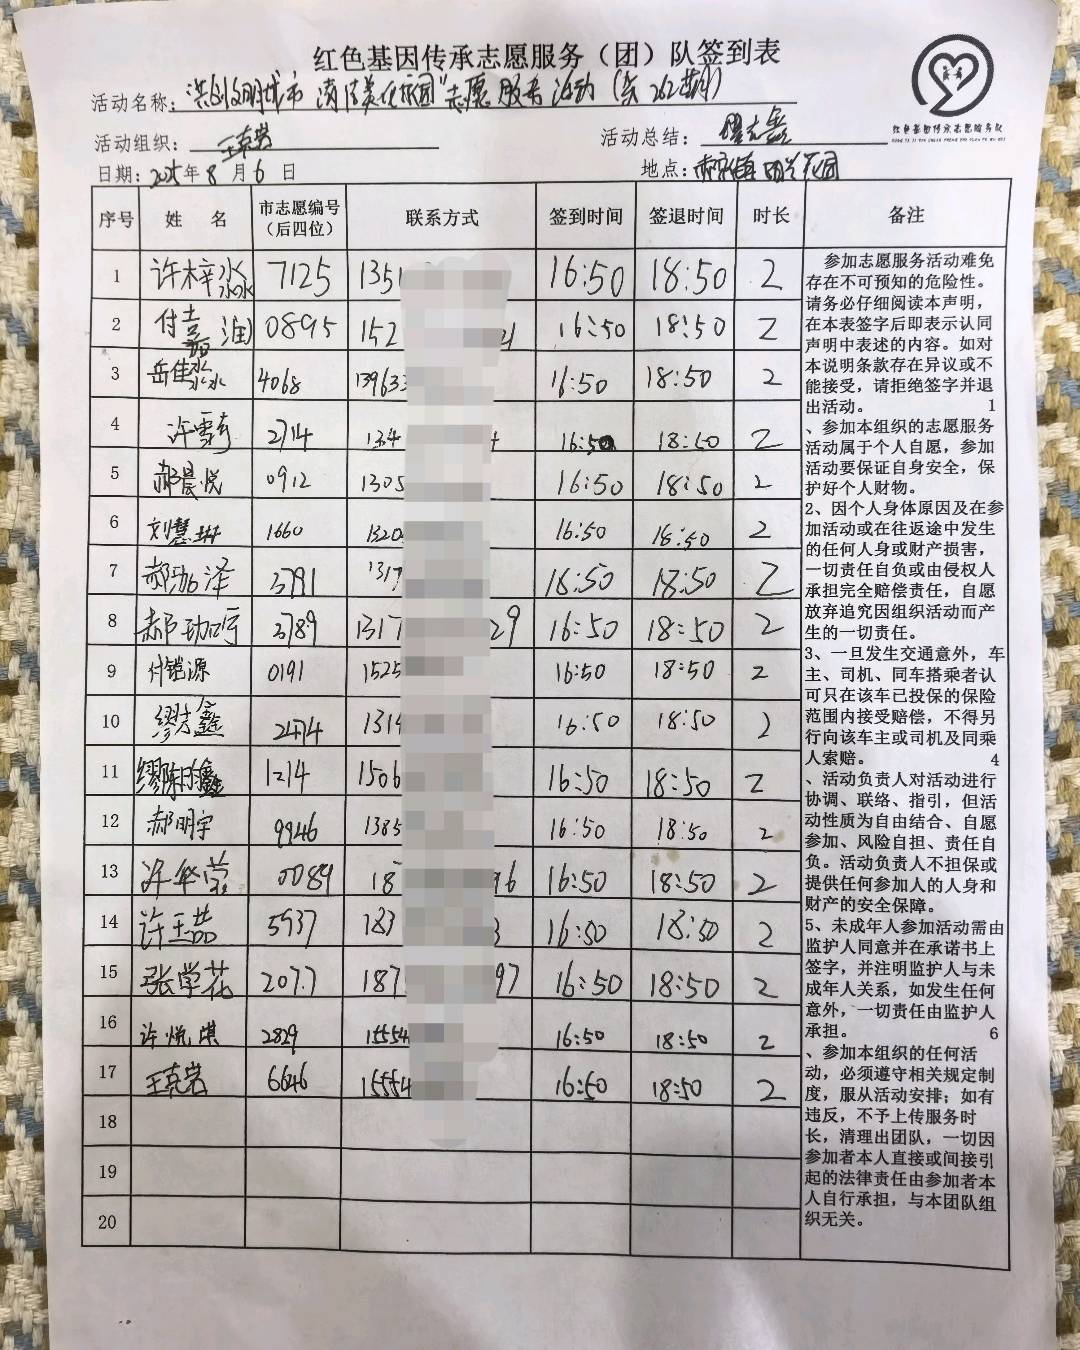 红色基因传承志愿服务（团）队签到表
活动名称：共创文明城市 清洁美化家园"志愿服务活动（第262期）
红色基因传承志愿服务队
活动组织：王克岩
活动总结：
日期：2025年8月6日
地点：
序号 姓名 市志愿编号（后四位） 联系方式 签到时间 签退时间 时长 备注
1 许梓淼 7125 135 16:50 18:50 2
2 付嘉润 0895 152 16:50 18:50 2
3 岳佳淼 4068 139633 16:50 18:50 2
4 许雪奇 2714 134 16:50 18:50 2
5 郝晨悦 0912 1305 16:50 18:50 2
6 刘慧琳 1660 1320 16:50 18:50 2
7 郝泽 3791 1317 16:50 18:50 2
8 郝 3789 1317 29 16:50 18:50 2
9 付铠源 0191 1525 16:50 18:50 2
10 缪鑫 2474 1314 16:50 18:50 2
11 缪陈 1214 1506 16:50 18:50 2
12 郝明宇 9946 1385 16:50 18:50 2
13 许华莹 0089 18 96 16:50 18:50 2
14 许玉喆 5937 183 3 16:50 18:50 2
15 张学花 2077 187 97 16:50 18:50 2
16 许悦淇 2829 15554 16:50 18:50 2
17 王克岩 6646 15554 16:50 18:50 2
18
19
20
参加志愿服务活动难免
存在不可预知的危险性。
请务必仔细阅读本声明，
在本表签字后即表示认同
声明中表述的内容。如对
本说明条款存在异议或不
能接受，请拒绝签字并退
出活动。 1
、参加本组织的志愿服务
活动属于个人自愿，参加
活动要保证自身安全，保
护好个人财物。
2、因个人身体原因及在参
加活动或在往返途中发生
的任何人身或财产损害，
一切责任自负或由侵权人
承担完全赔偿责任，自愿
放弃追究因组织活动而产
生的一切责任。
3、一旦发生交通意外，车
主、司机、同车搭乘者认
可只在该车已投保的保险
范围内接受赔偿，不得另
行向该车主或司机及同乘
人索赔。 4
、活动负责人对活动进行
协调、联络、指引，但活
动性质为自由结合、自愿
参加、风险自担、责任自
负。活动负责人不担保或
提供任何参加人的人身和
财产的安全保障。
5、未成年人参加活动需由
监护人同意并在承诺书上
签字，并注明监护人与未
成年人关系，如发生任何
意外，一切责任由监护人
承担。 6
、参加本组织的任何活
动，必须遵守相关规定制
度，服从活动安排；如有
违反，不予上传服务时
长，清理出团队，一切因
参加者本人直接或间接引
起的法律责任由参加者本
人自行承担，与本团队组
织无关。